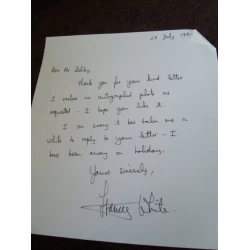 July 1991
Dear Mr
Thank you for your kind letter
I enclose an autographed photo as
requested - I hope you like it.
I am sorry it has taken me a
while to reply to your letter - I
have been away on holiday.
Yours sincerely,
Frances White.